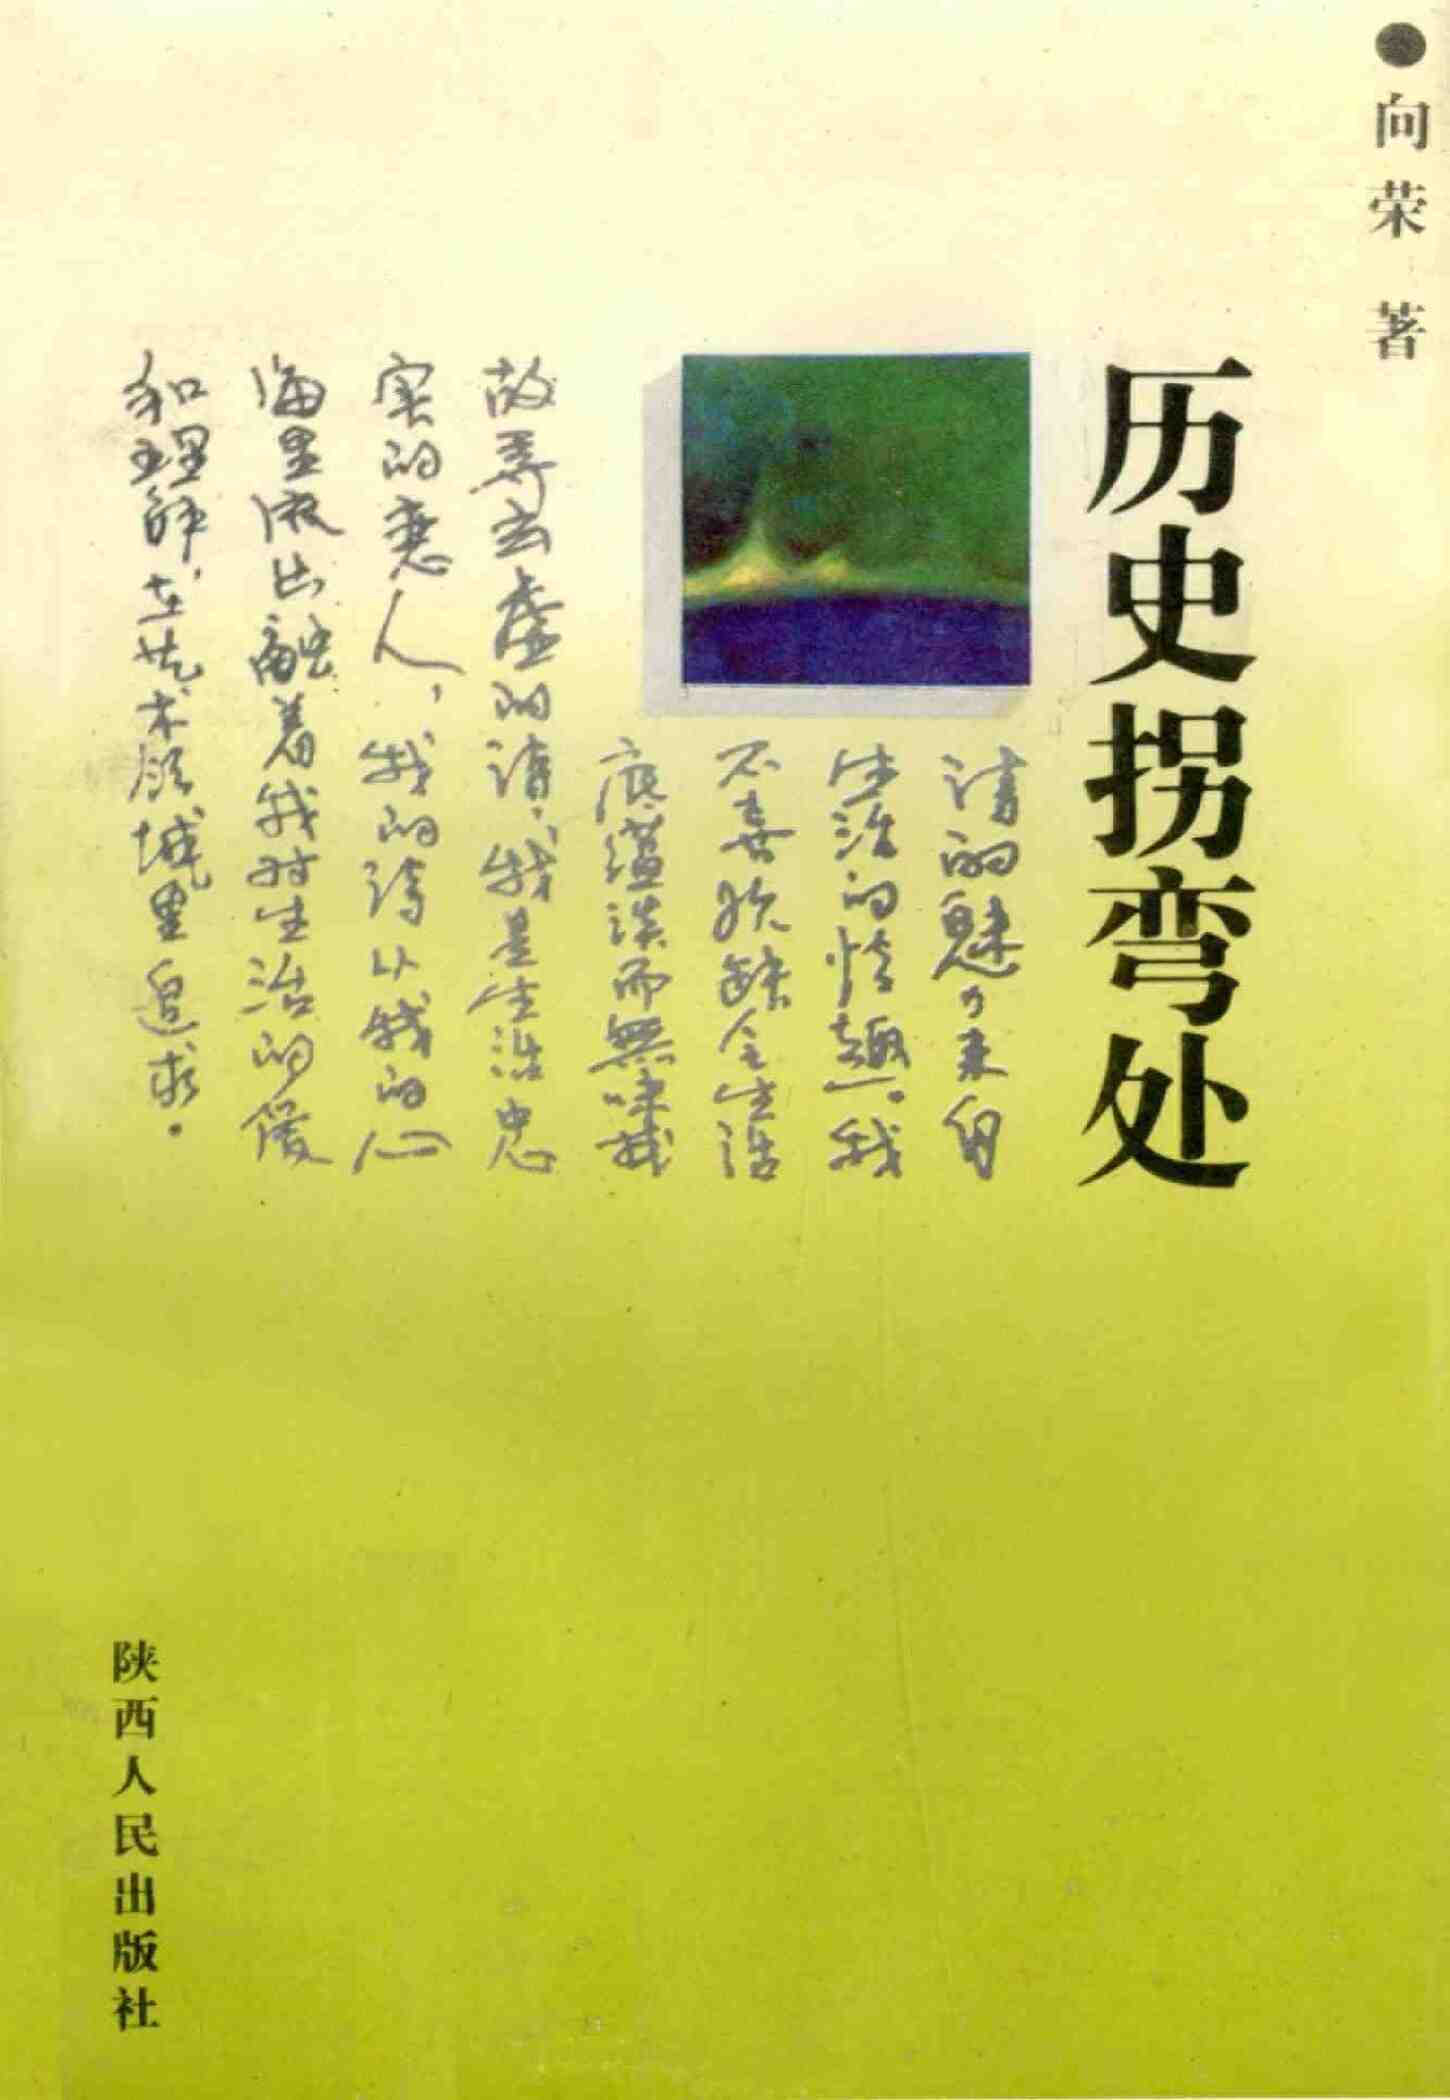 ●向荣 著
历史拐弯处
诗的魅力来自
生活的情趣。我
不喜欢缺仝生活
底蕴淡而無味我
故弄玄虚的诗,我是生活忠
实的恋人,我的诗从我的心
海里液出融着我对生活的爱
和理解,在艺术领域里追求。
陕西人民出版社